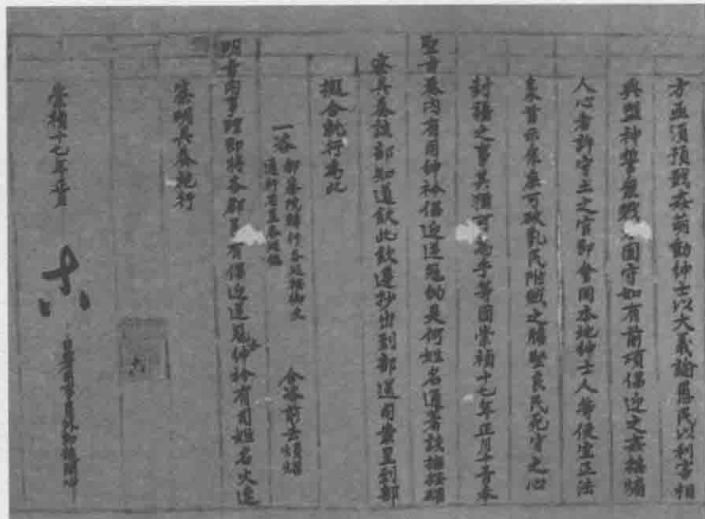 方亟須預戢奸萌勸紳士以大義諭愚民以利害相
與盟神誓眾戮力固守如有前項倡迎之奸搖煽
人心者許守土之官即會同本地紳士人等便宜正法
梟首示眾庶可破乳民附賊之膽堅良民死守之心
封疆之事其猶可為乎等因崇禎十七年正月 奉
聖旨奏內有司紳衿倡迎逆寇的是何姓名通著該撫按確
察具奏該部知道欽此欽遵抄出到部送司案呈到部
擬合就行為此
一咨 都察院轉行各巡按御史
合咨前去煩煩
明旨內事理即將各郡邑有倡迎逆寇紳衿有司姓名火速
察明具奏施行
崇禎十七年正月
十六